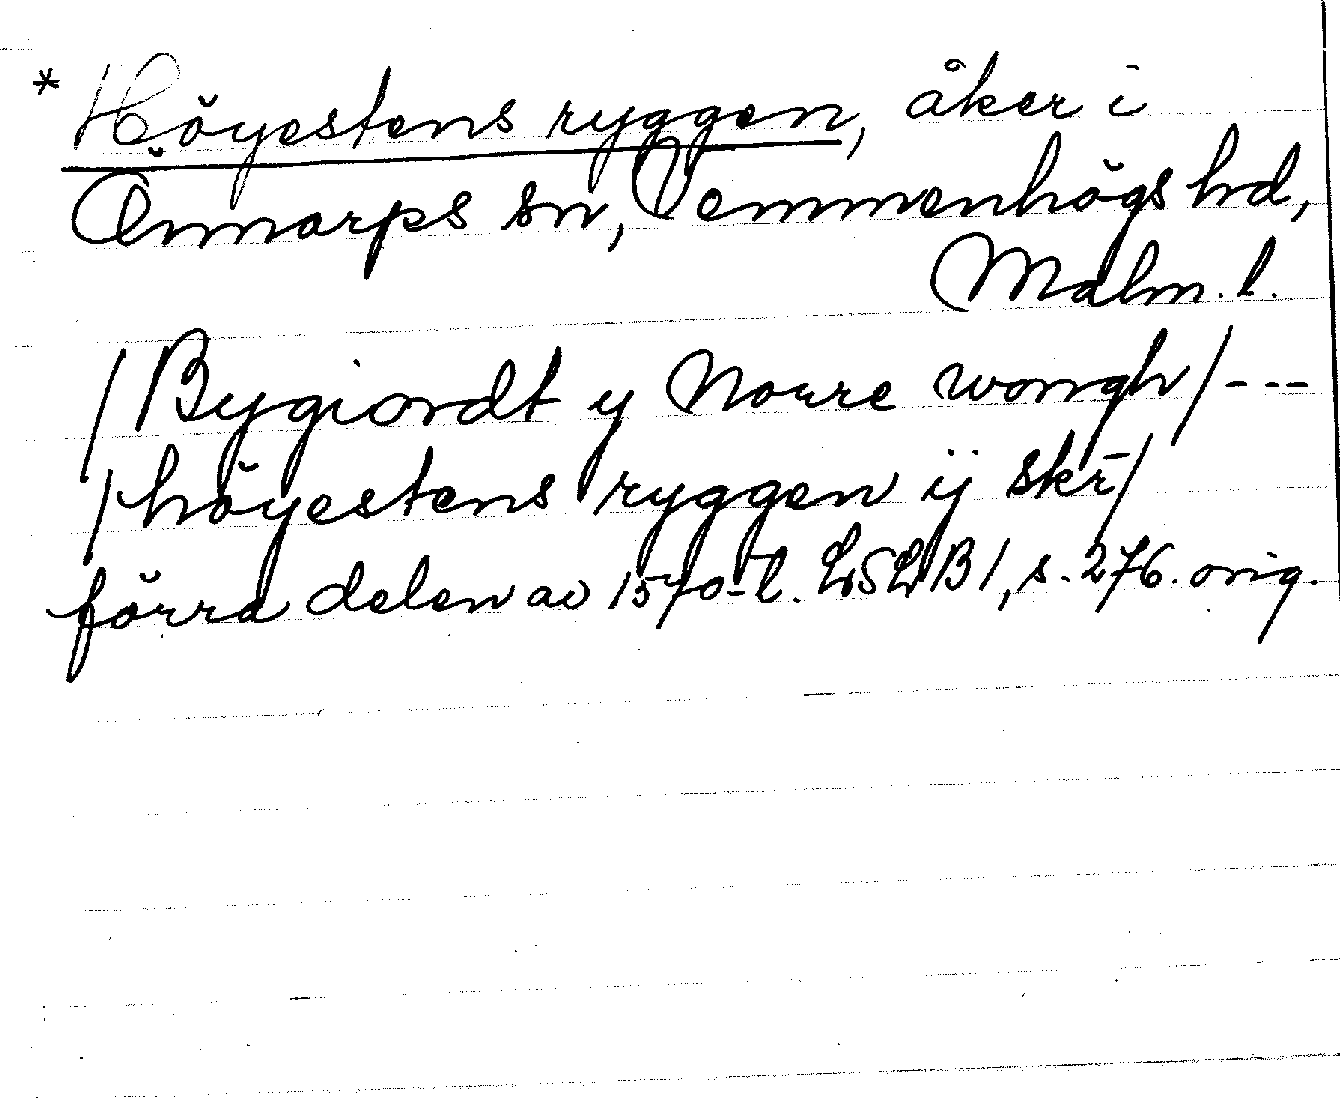 * Höyestens ryggen, åker i
Önnarps sn, Vemmenhögs hd,
Malm. l.
/Bygiordt y Norre wongh/---
/höyestens ryggen ij skr̄/
förra delen av 1570-t. LSLB1, s. 276. orig.